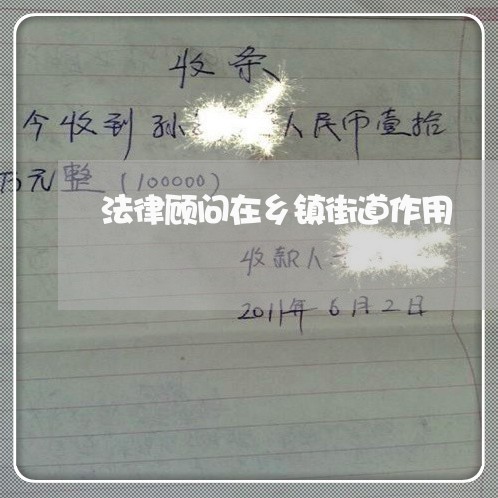 收条
今收到孙 人民币壹拾
万元整(100000)
法律顾问在乡镇街道作用
收款人
2011年6月2日